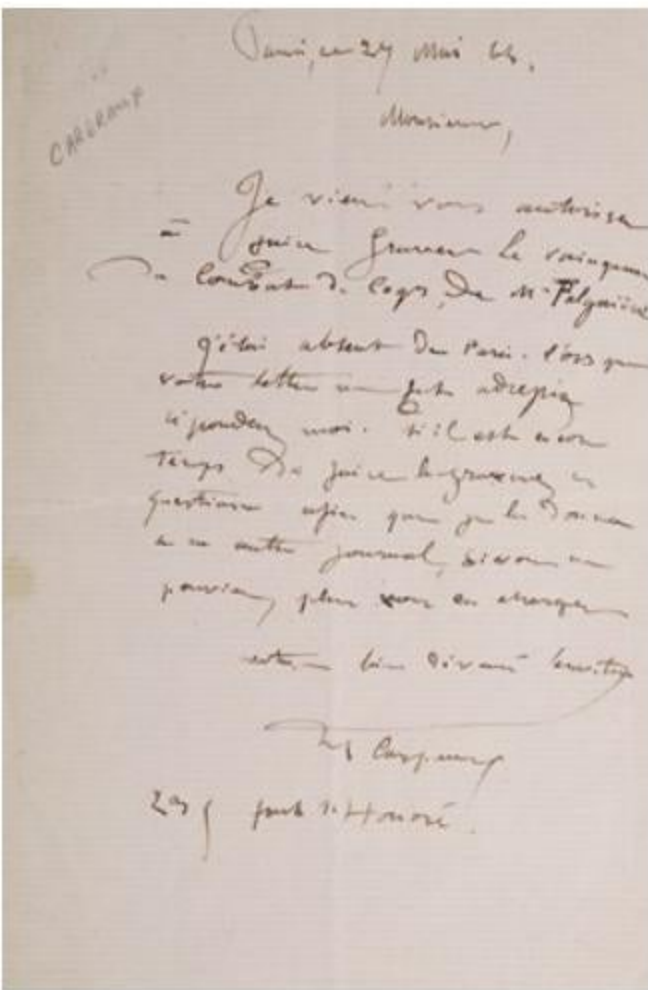 Paris, ce 24 Mai 66.
Monsieur,
Je viens vous autoriser
à faire graver le vainqueur
de Combat de Coqs, De Mr Falguière
J'étai absent De Paris. lors que
votre lettre me fut
répondez moi. si il est encor
Temps De faire la gravure en
question afin que je la Donne
a un autre journal, si vous ne
pouviez plus vous en charger
votre bien Dévoué serviteur
Carpeaux
faub St Honoré.
CARPEAUX